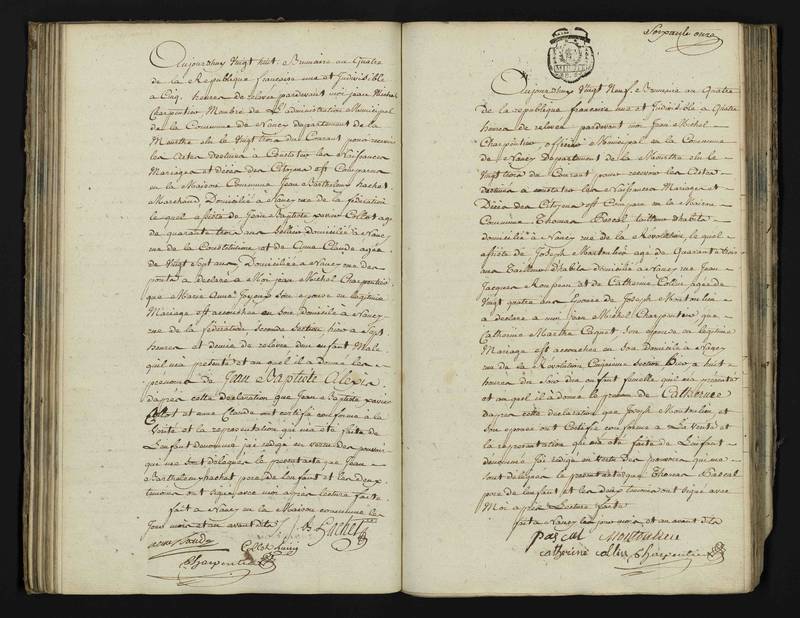 Aujourdhuy Vingt huit Brumaire an Quatre
de la République française une et Indivisible
a Cinq heures de relevée pardevant moi jean Michel
Charpentier Membre de L'administration Municipal
de la Commune de Nancy département de la
Meurthe élu le Vingt trois du Courant pour recevoir
les Actes destinés a Constater les Naissances
Mariages et décès des Citoyens est Comparu
en la Maison Commune Jean Barthelemy hachet
Marchand Domicilié a Nancy rue de la fédération
lequel assisté de Jean Baptiste xavier Collot agé
de quarante trois ans Sellier domicilié a Nancy
rue de la Constitution et de Anne Claude agée
de Vingt Sept ans Domiciliée a Nancy rue des
ponts a déclaré a Moi jean Michel Charpentier
que Marie Anne son epouse en légitime
Mariage est accouchée en son domicile a Nancy
rue de la fédération seconde section hier a Sept
heures et demie de relevée d'un enfant Male
qu'il m'a présenté et auquel il a donné les
prenoms de Jean Baptiste Alexis
d'après cette déclaration que Jean Baptiste xavier
Collot et anne Claude ont certifié conforme a la
Vérité et la représentation qui m'a été faite de
L'enfant dénommé j'ai rédigé en vertu des pouvoirs
qui me sont délégués le présent acte que Jean
Barthelemy hachet pere de l'enfant et les deux
temoins ont signé avec moi après lecture faite
fait a Nancy en la Maison commune les
Jour mois et an avant dits J B hachet
anne Claude
Collot
Charpentier
Aujourdhuy Vingt Neuf Brumaire an Quatre
de la republique française une et Indivisible a Quatre
heures de relevée pardevant moi Jean Michel
Charpentier officier Municipal de la Commune
de Nancy Département de la Meurthe élu le
Vingt trois du Courant pour recevoir les Actes
destinés a constater les Naissances Mariages et
Décès des Citoyens est Comparu en la Maison
Commune Thomas Pascal tailleur d'habits
domicilié a Nancy rue de la Révolution, lequel
assisté de Joseph agé de Quarante trois
ans Tailleur d'habits domicilié a Nancy rue Jean
Jacques Rousseau et de Catherine Colin agée de
Vingt quatre ans Epouse de Joseph
a déclaré a moi Jean Michel Charpentier que
Catherine Marthe son epouse en légitime
Mariage est accouchée en son Domicile a Nancy
rue de la Révolution Cinquieme section hier a huit
heures du Soir d'un enfant femelle qu'il m'a présenté
et auquel il a donné le prenom de Catherine
d'après cette déclaration que Joseph et
son epouse ont Certifié conforme a la Vérité et
la représentation qui m'a été faite de L'enfant
dénommé j'ai rédigé en vertu des pouvoirs qui me
sont délégués le présent acte que Thomas Pascal
pere de l'enfant et les deux temoins ont signé avec
Moi après Lecture faite
faite a Nancy les jour mois et an avant dits
pascal
catherine colin Charpentier